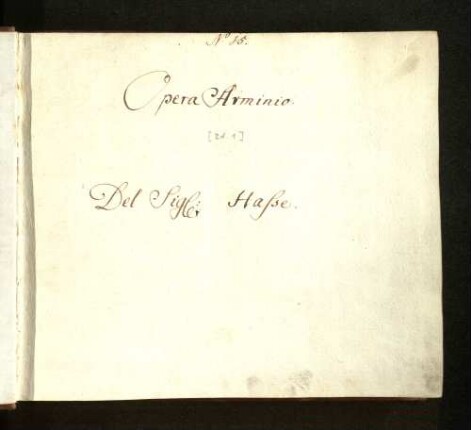 No 15.
Opera Arminio.
[Bd. 1]
Del Sigr: Haſse.